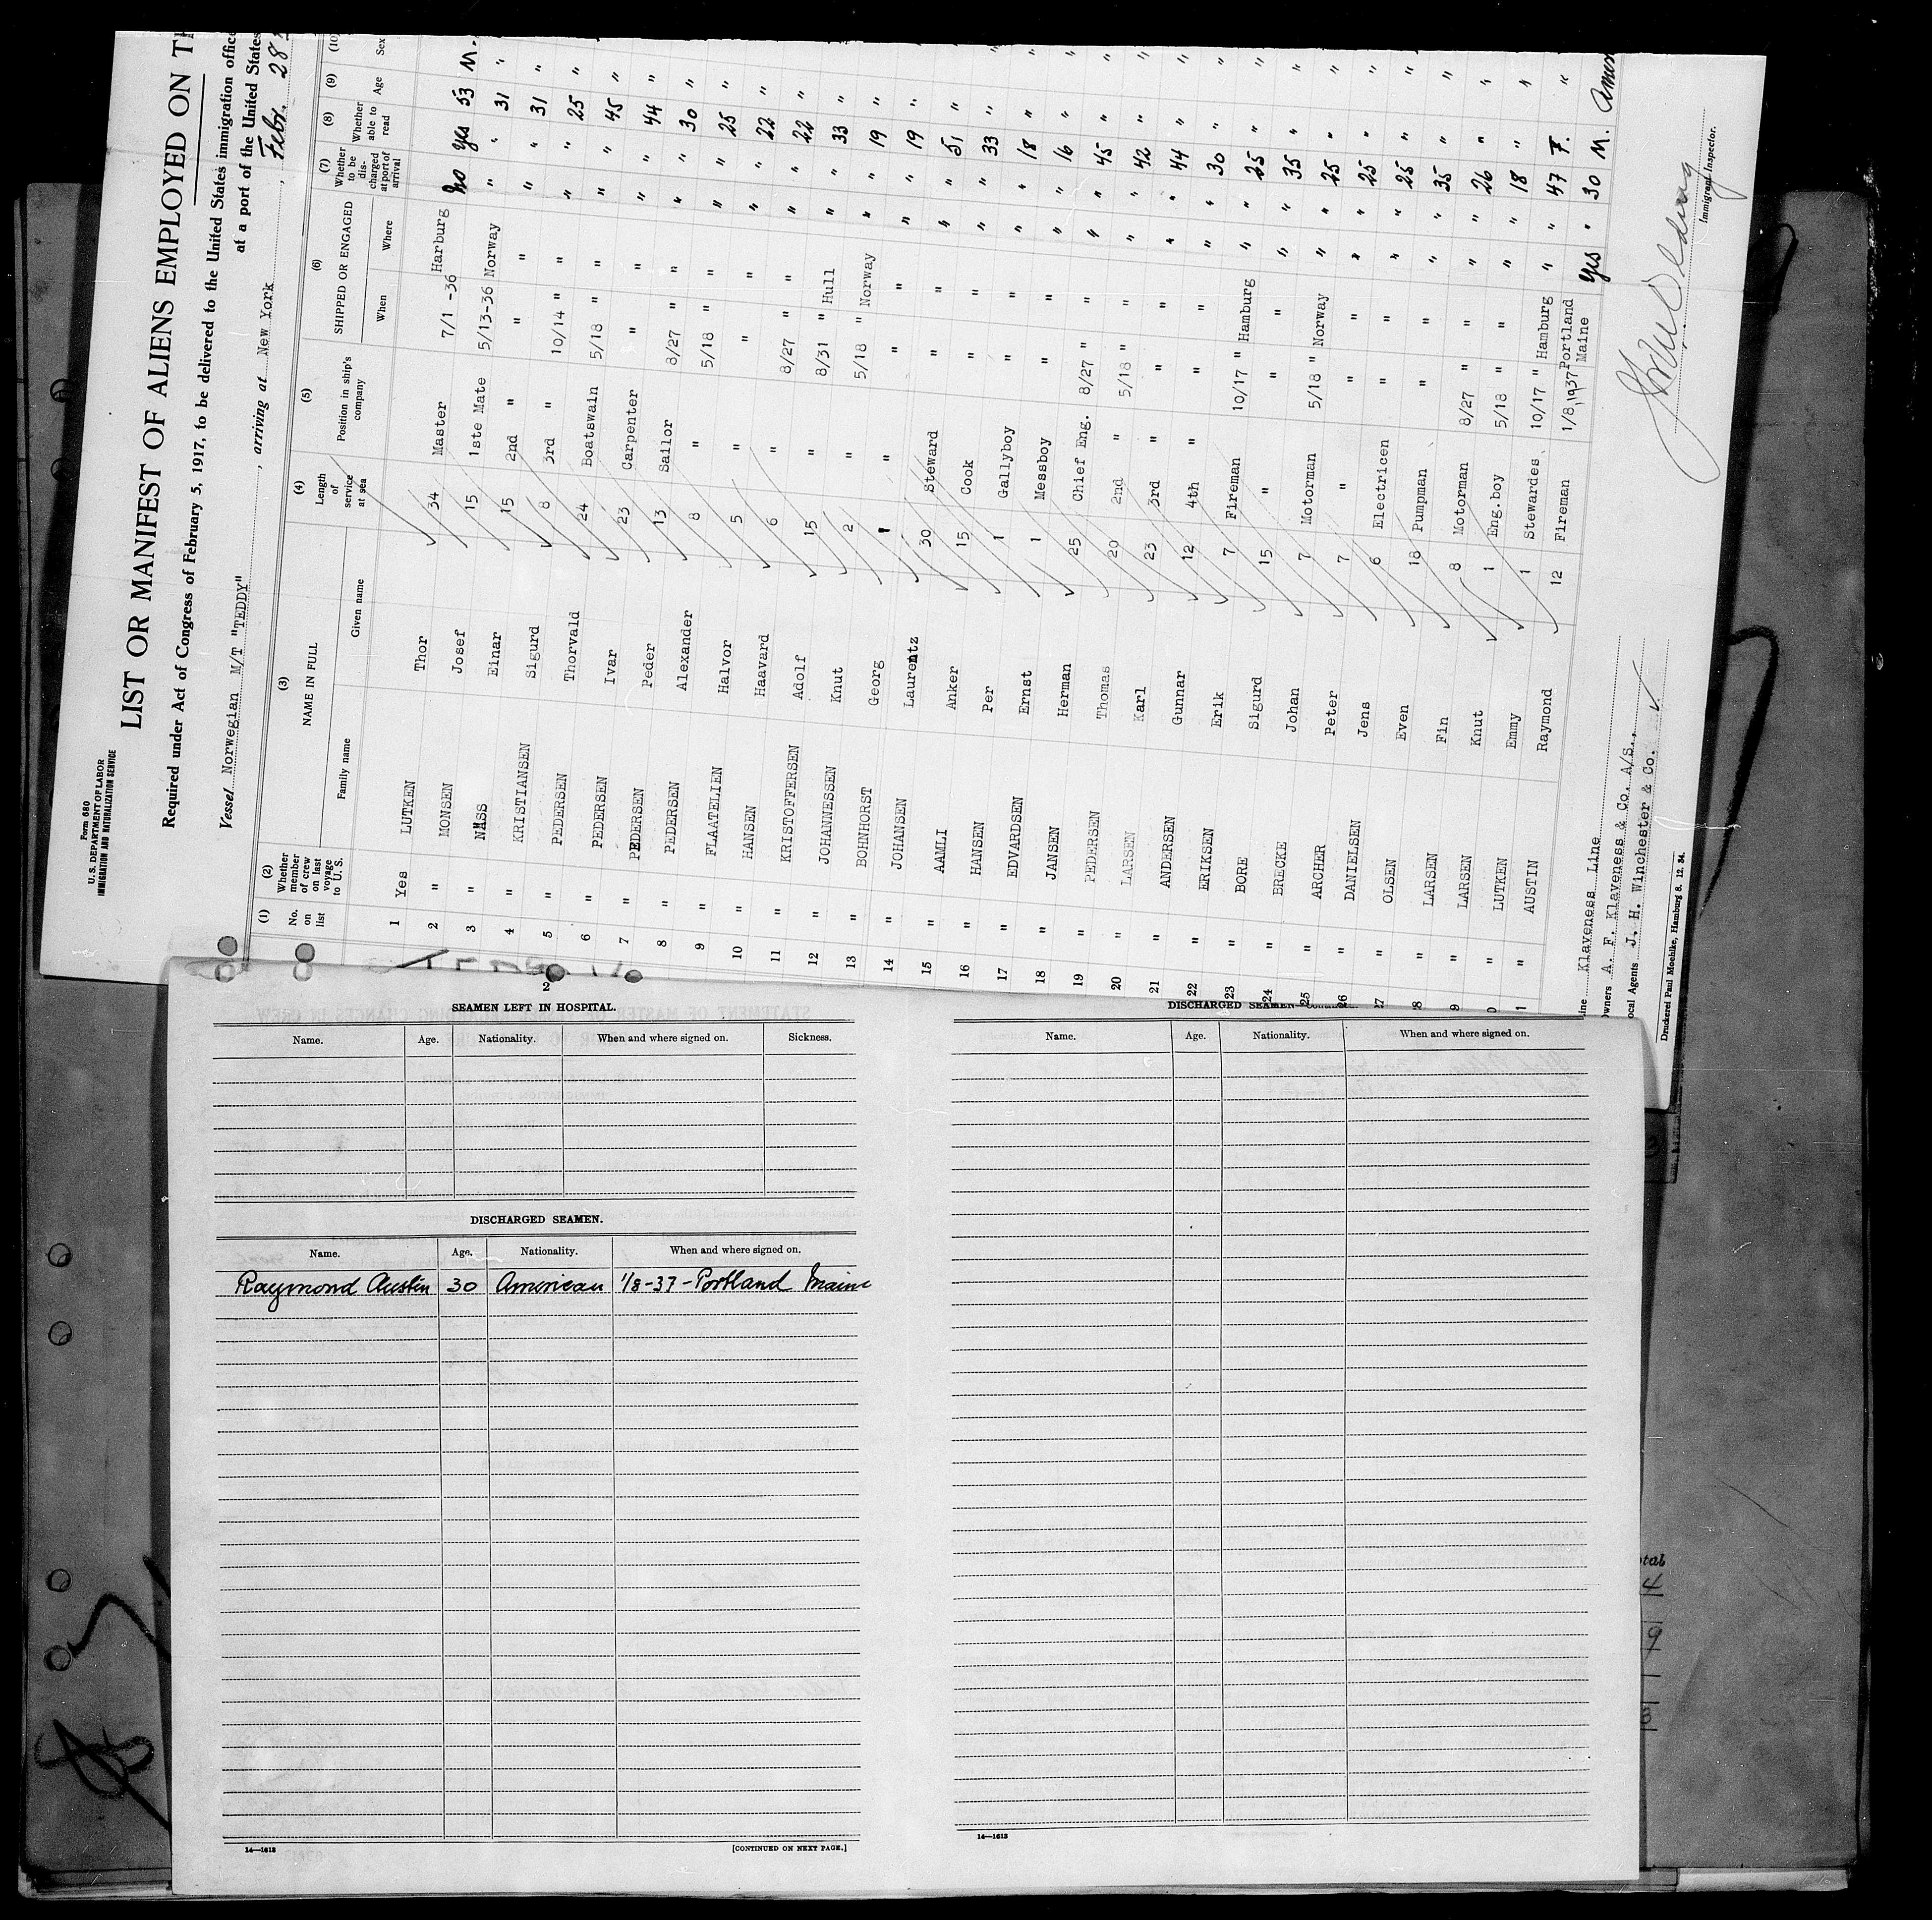 Form 680
U. S. DEPARTMENT OF LABOR
IMMIGRATION AND NATURALIZATION SERVICE
LIST OR MANIFEST OF ALIENS EMPLOYED ON TH
Required under Act of Congress of February 5, 1917, to be delivered to the United States immigration office
at a port of the United States
Vessel Norwegian M/T "TEDDY" , arriving at New York , Febr. 28
(1) No. on list (2) Whether member of crew on last voyage to U. S. (3) NAME IN FULL Family name Given name (4) Length of service at sea (5) Position in ship's company (6) SHIPPED OR ENGAGED When Where (7) Whether to be discharged at port of arrival (8) Whether able to read (9) Age (10) Sex
1 Yes LUTKEN Thor 34 Master 7/1 -36 Harburg No Yes 53 M.
2 " MONSEN Josef 15 1ste Mate 5/13-36 Norway " " 31 "
3 " NÆSS Einar 15 2nd " " " " " 31 "
4 " KRISTIANSEN Sigurd 8 3rd " 10/14 " " " " 25 "
5 " PEDERSEN Thorvald 24 Boatswain 5/18 " " " " 45 "
6 " PEDERSEN Ivar 23 Carpenter " " " " 44 "
7 " PEDERSEN Peder 13 Sailor 8/27 " " " " 30 "
8 " PEDERSEN Alexander 8 " 5/18 " " " " 25 "
9 " FLAATELIEN Halvor 5 " " " " " 22 "
10 " HANSEN Haavard 6 " 8/27 " " " " 22 "
11 " KRISTOFFERSEN Adolf 15 " 8/31 " Hull " " 33 "
12 " JOHANNESSEN Knut 2 " 5/18 " Norway " " 19 "
13 " BOHNHORST Georg 1 " " " " " 19 "
14 " JOHANSEN Laurentz 30 Steward " " " " 51 "
15 " AAMLI Anker 15 Cook " " " " 33 "
16 " HANSEN Per 1 Gallyboy " " " " 18 "
17 " EDVARDSEN Ernst 1 Messboy " " " " 16 "
18 " JANSEN Herman 25 Chief Eng. 8/27 " " " " 45 "
19 " PEDERSEN Thomas 20 2nd " 5/18 " " " " 42 "
20 " LARSEN Karl 23 3rd " " " " " 44 "
21 " ANDERSEN Gunnar 12 4th " " " " " 30 "
22 " ERIKSEN Erik 7 Fireman 10/17 " Hamburg " " 25 "
23 " BORE Sigurd 15 " " " " " 35 "
24 " BRECKE Johan 7 Motorman 5/18 " Norway " " 25 "
25 " ARCHER Peter 7 " " " " " 25 "
26 " DANIELSEN Jens 6 Electricen " " " " 25 "
27 " OLSEN Even 18 Pumpman " " " " 35 "
8 " LARSEN Fin 8 Motorman 8/27 " " " " 26 "
9 " LARSEN Knut 1 Eng.boy 5/18 " " " " 18 "
0 " LUTKEN Emmy 1 Stewardes 10/17 " Hamburg " " 47 F.
1 " AUSTIN Raymond 12 Fireman 1/8 1937 Portland Maine Yes " 30 M. Ameri
ine Klaveness Line
Owners A. F. Klaveness & Co. A/s.,
ocal Agents J. H. Winchester & Co.
Immigrant Inspector.
Druckerei Paul Moehlke, Hamburg 8. 12. 34.
2
SEAMEN LEFT IN HOSPITAL.
Name. Age. Nationality. When and where signed on. Sickness.
DISCHARGED SEAMEN.
Name. Age. Nationality. When and where signed on.
Raymond Austin 30 American 1/8-37-Portland Maine
14—1613
[CONTINUED ON NEXT PAGE.]
DISCHARGED SEAMEN—Continued.
Name. Age. Nationality. When and where signed on.
14—1613
otal
4
9